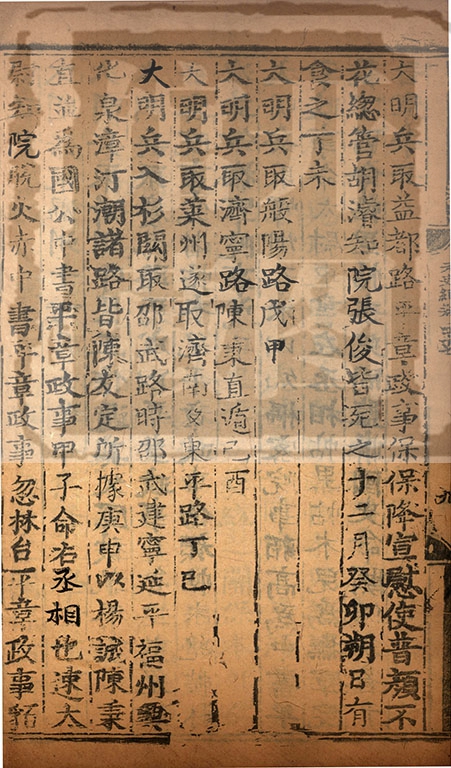 大明兵取益都路平章政事保保降宣慰使普顏不
花總管胡濬知院張俊皆死之十二月癸卯朔日有
食之丁未
大明兵取般陽路戊申
大明兵取濟寧路陳秉直遁己酉
大明兵取萊州遂取濟南及東平路丁巳
大明兵入杉關取邵武路時邵武建寧延平福州興
化泉漳汀潮諸路皆陳友定所據庚申以楊誠陳秉
直並為國公中書平章政事甲子命右丞相也速太
尉知院脫火赤中書平章政事忽林台平章政事貊
九